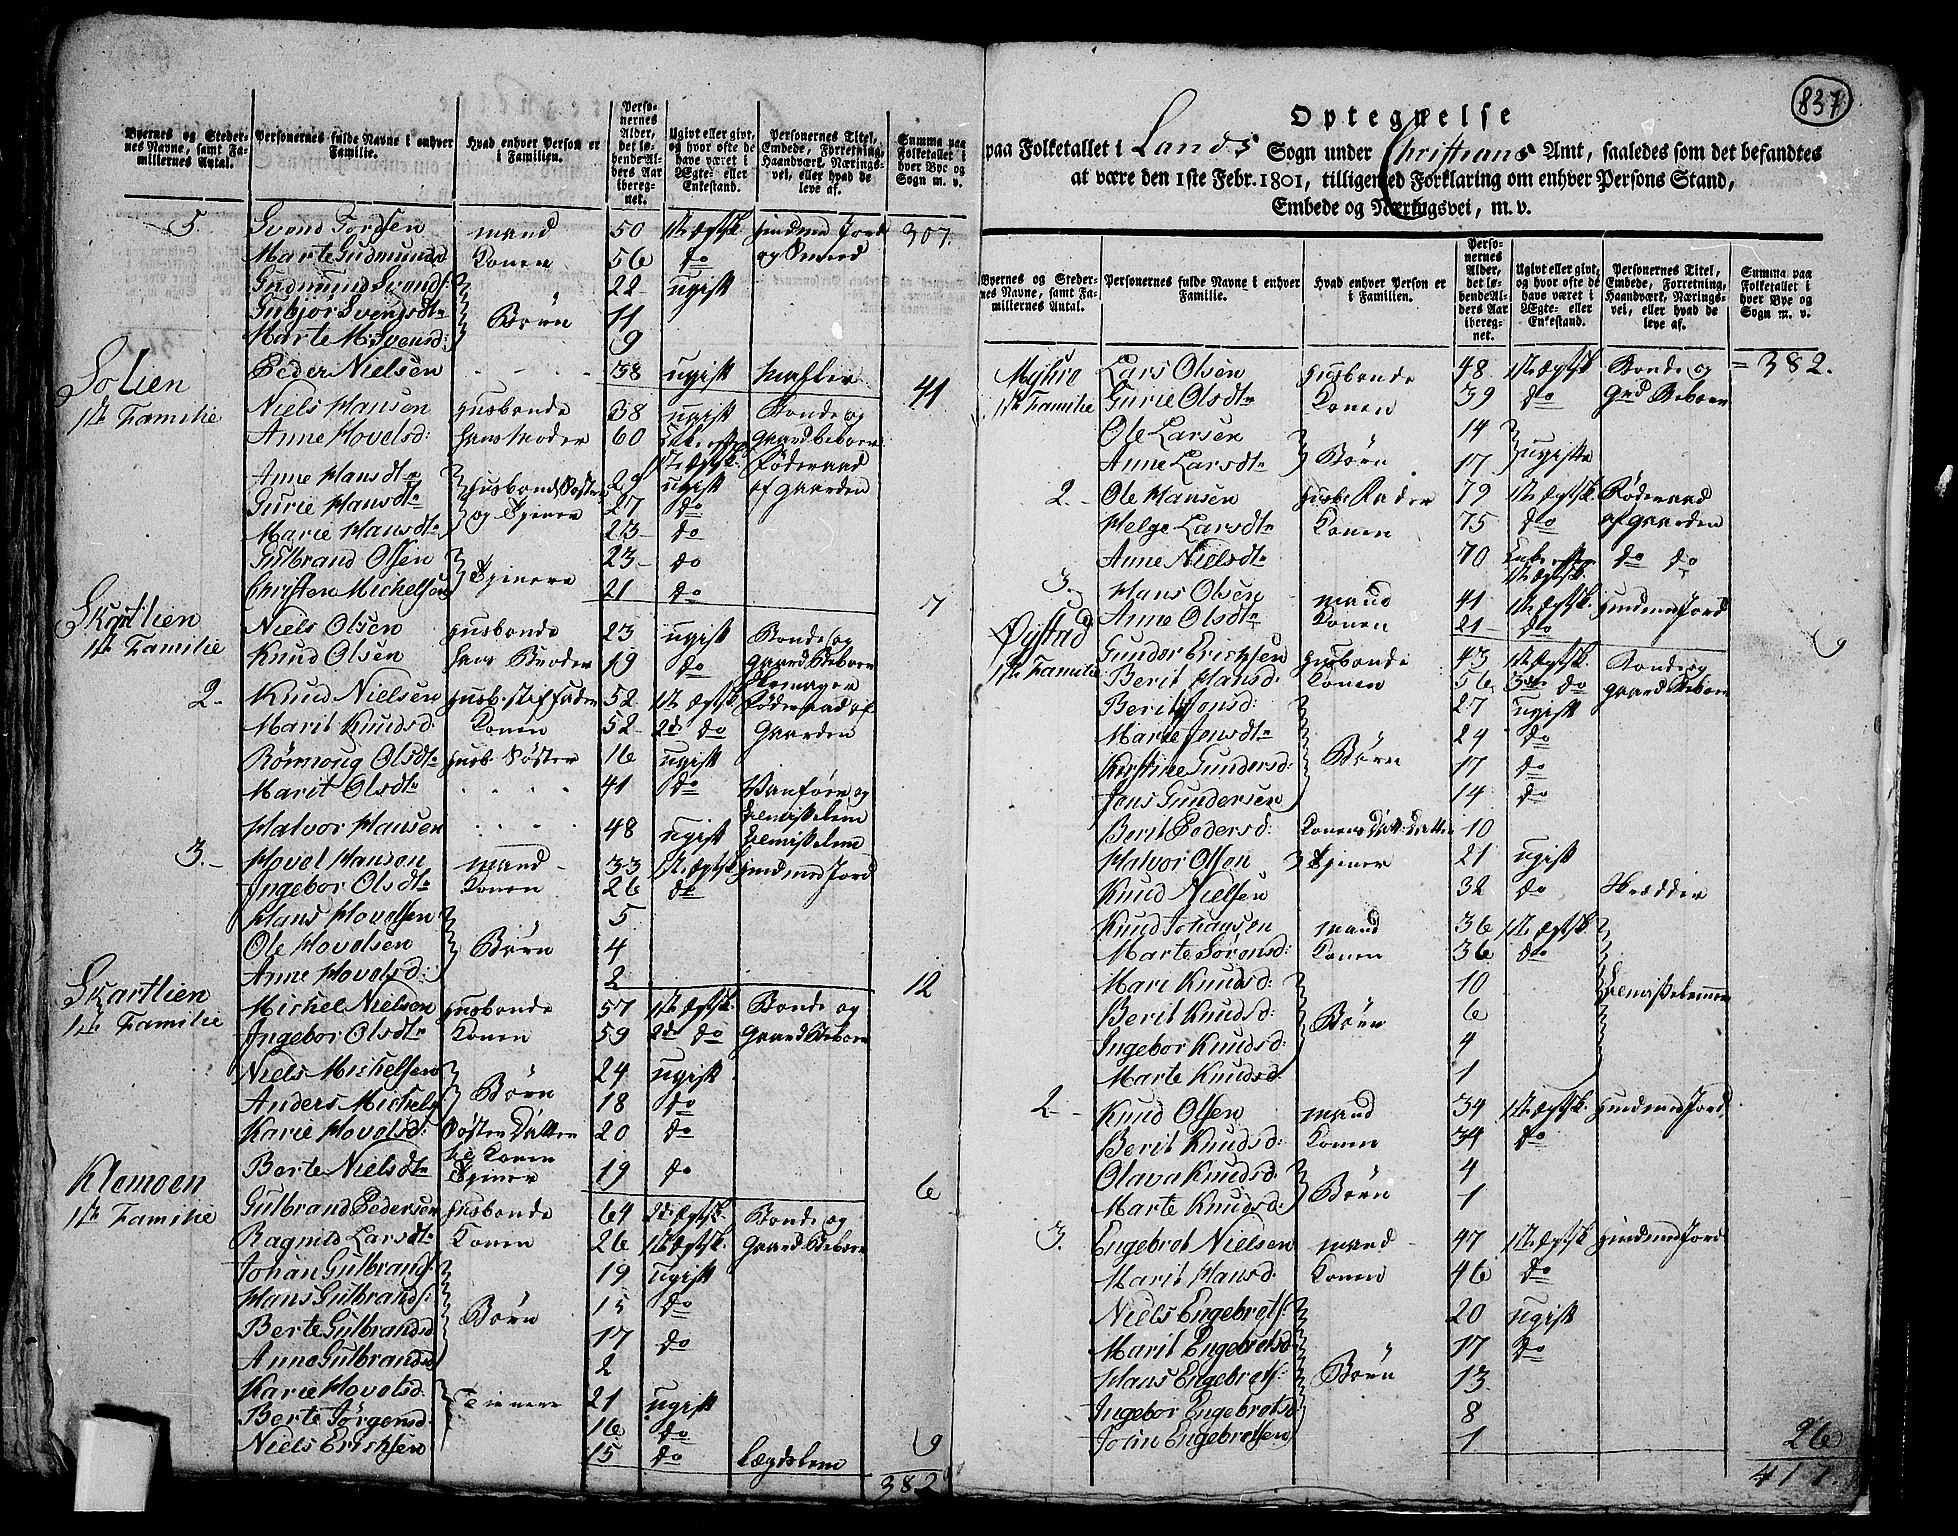 Byernes og Stedernes Navne, samt Familliernes Antal. | Personernes fulde Navne i enhver Familie. | Hvad enhver Person er i Familien. | Personernes Alder, det løbende Alders Aar iberegnet. | Ugivt eller givt, og hvor ofte de have været i Ægte- eller Enkestand. | Personernes Titel, Embede, Forretning, Haandværk, Næringsvei, eller hvad de leve af. | Summa paa Folketallet i hver Bye og Sogn m. v.
5. Svend Tordsen mand 50 1ste Ægtsk. huusmd Jord 307.
Marte Gudmunds Konen 56 do og Smed
Gudmund Svends: 22 ugift
Gubjør Svendsdtr Børn 11
Marte M. Svensd: 9
Peder Nielsen 38 ugift 41
Solien Niels Hansen Husbonde 38 ugift Bonde og
1te Familie Anne Hovelsd: hans Moder 60 Enke efter Gaardbeboer
1te Ægtsk. Føderaad
Anne Hansdtr 29 ugift af gaarden
Gurie Hansdtr Husbonds Søstre 27 do
Marie Hansdtr og Tjener 23 do
Gulbrand Olsen 23 do
Christen Michelsen Tjenere 21 do 7
Skartlien Niels Olsen Husbonde 23 ugift Bonde og
1te Familie Knud Olsen hans Broder 19 do Gaard Beboer
2. Knud Nielsen Husb. stif fader 52 1te Ægtsk Føderaad af
Marit Knudsd Konen 52 2de do Gaarden
Rønnoug Olsdtr Husb. Søster 16 ugift
Marit Olsdtr 41 do Vanføre og
Halvor Hansen 48 ugift
3. Hovel Hansen mand 33 1te Ægtsk huusmd Jord
Ingebor Olsdtr Konen 26 do
Hans Hovelsen 5
Ole Hovelsen Børn 4
Anne Hovelsd: 2 12
Skartlien Michel Nielsen Husbonde 57 1te Ægtsk. Bonde og
1te Familie Ingebor Olsdtr Konen 59 2de do Gaard Beboer
Niels Michelsen 24 ugift
Anders Michels Børn 18 do
Karie Hovelsd: Søster Datter 20 do
til Konen
Berte Nielsdtr Tjener 19 do 6
Klemoen Gulbrand Pedersen Husbonde 64 2de Ægtsk. Bonde og
1te Familie Ragnild Larsdtr Konen 26 1te Ægtsk. Gaard Beboer
Johan Gulbrands: 19 ugift
Hans Gulbrands: 15 do
Berte Gulbrandsd Børn 17 do
Anne Gulbrandsd 2
Karie Hovelsd. 21 ugift
Berte Jørgensd. Tienere 16 do
Niels Erichsen 15 do Lægdslem 9
382
837
Optegnelse
paa Folketallet i Lands Sogn under Christians Amt, saaledes som det befandtes
at være den 1ste Febr. 1801, tilligemed Forklaring om enhver Persons Stand,
Embede og Næringsvei, m. v.
Byernes og Stedernes Navne, samt Familiernes Antal. | Personernes fulde Navne i enhver Familie. | Hvad enhver Person er i Familien. | Personernes Alder, det løbende Alders Aar iberegnet. | Ugivt eller givt, og hvor ofte de have været i Ægte- eller Enkestand. | Personernes Titel, Embede, Forretning, Haandværk, Næringsvei, eller hvad de leve af. | Summa paa Folketallet i hver Bye og Sogn m. v.
Myhre Lars Olsen Husbonde 48 1te Ægtsk. Bonde og = 382.
1te Familie Gurie Olsdtr Konen 39 do Grd Beboer
Ole Larsen 14
Anne Larsdtr Børn 17 ugifte
2 - Ole Hansen Husb: Fader 79 1te Ægtsk. Føderaad
Helge Larsdtr Konen 75 do af gaarden
Anne Nielsdtr 70 Enke efter do do
1te Ægtsk.
3. Hans Olsen mand 41 1te Ægtsk. huusmd Jord
Anne Olsdtr Konen 21 do 9
Øystad Gunder Erichsen Husbonde 43 1te Ægtsk. Bonde og
1te Familie Berit Hansd: Konen 56 3de do gaard Beboer
Berit Jonsd: 27 ugift
Marie Jensdtr 24 do
Kirstine Gundersd: Børn 17 do
Jens Gundersen 14 do
Berit Pedersd: Konens Datt: Datter 10
Halvor Olsen Tjener 21 ugift
Knud Nielsen 32 do Skrædder
Knud Johansen mand 36 1te Ægtsk.
Marte Sørensd: Konen 36 do
Mari Knudsd: 10
Berit Knudsd: 6
Ingebor Knudsd: Børn 4
Marte Knudsd. 1
2 - Knud Olsen mand 34 1te Ægtsk. huusmd Jord
Berit Knudsd: Konen 34 do
Olava Knudsd: 4
Marte Knudsd: Børn 1
3. Engebret Nielsen mand 47 1te Ægtsk. huusmd Jord
Marit Hansd. Konen 46 do
Niels Engebrets: 20 ugift
Marit Engebretsd 17 do
Hans Engebrets: Børn 13
Ingebor Engebretsd 8
John Engebretsen 1 26
417.